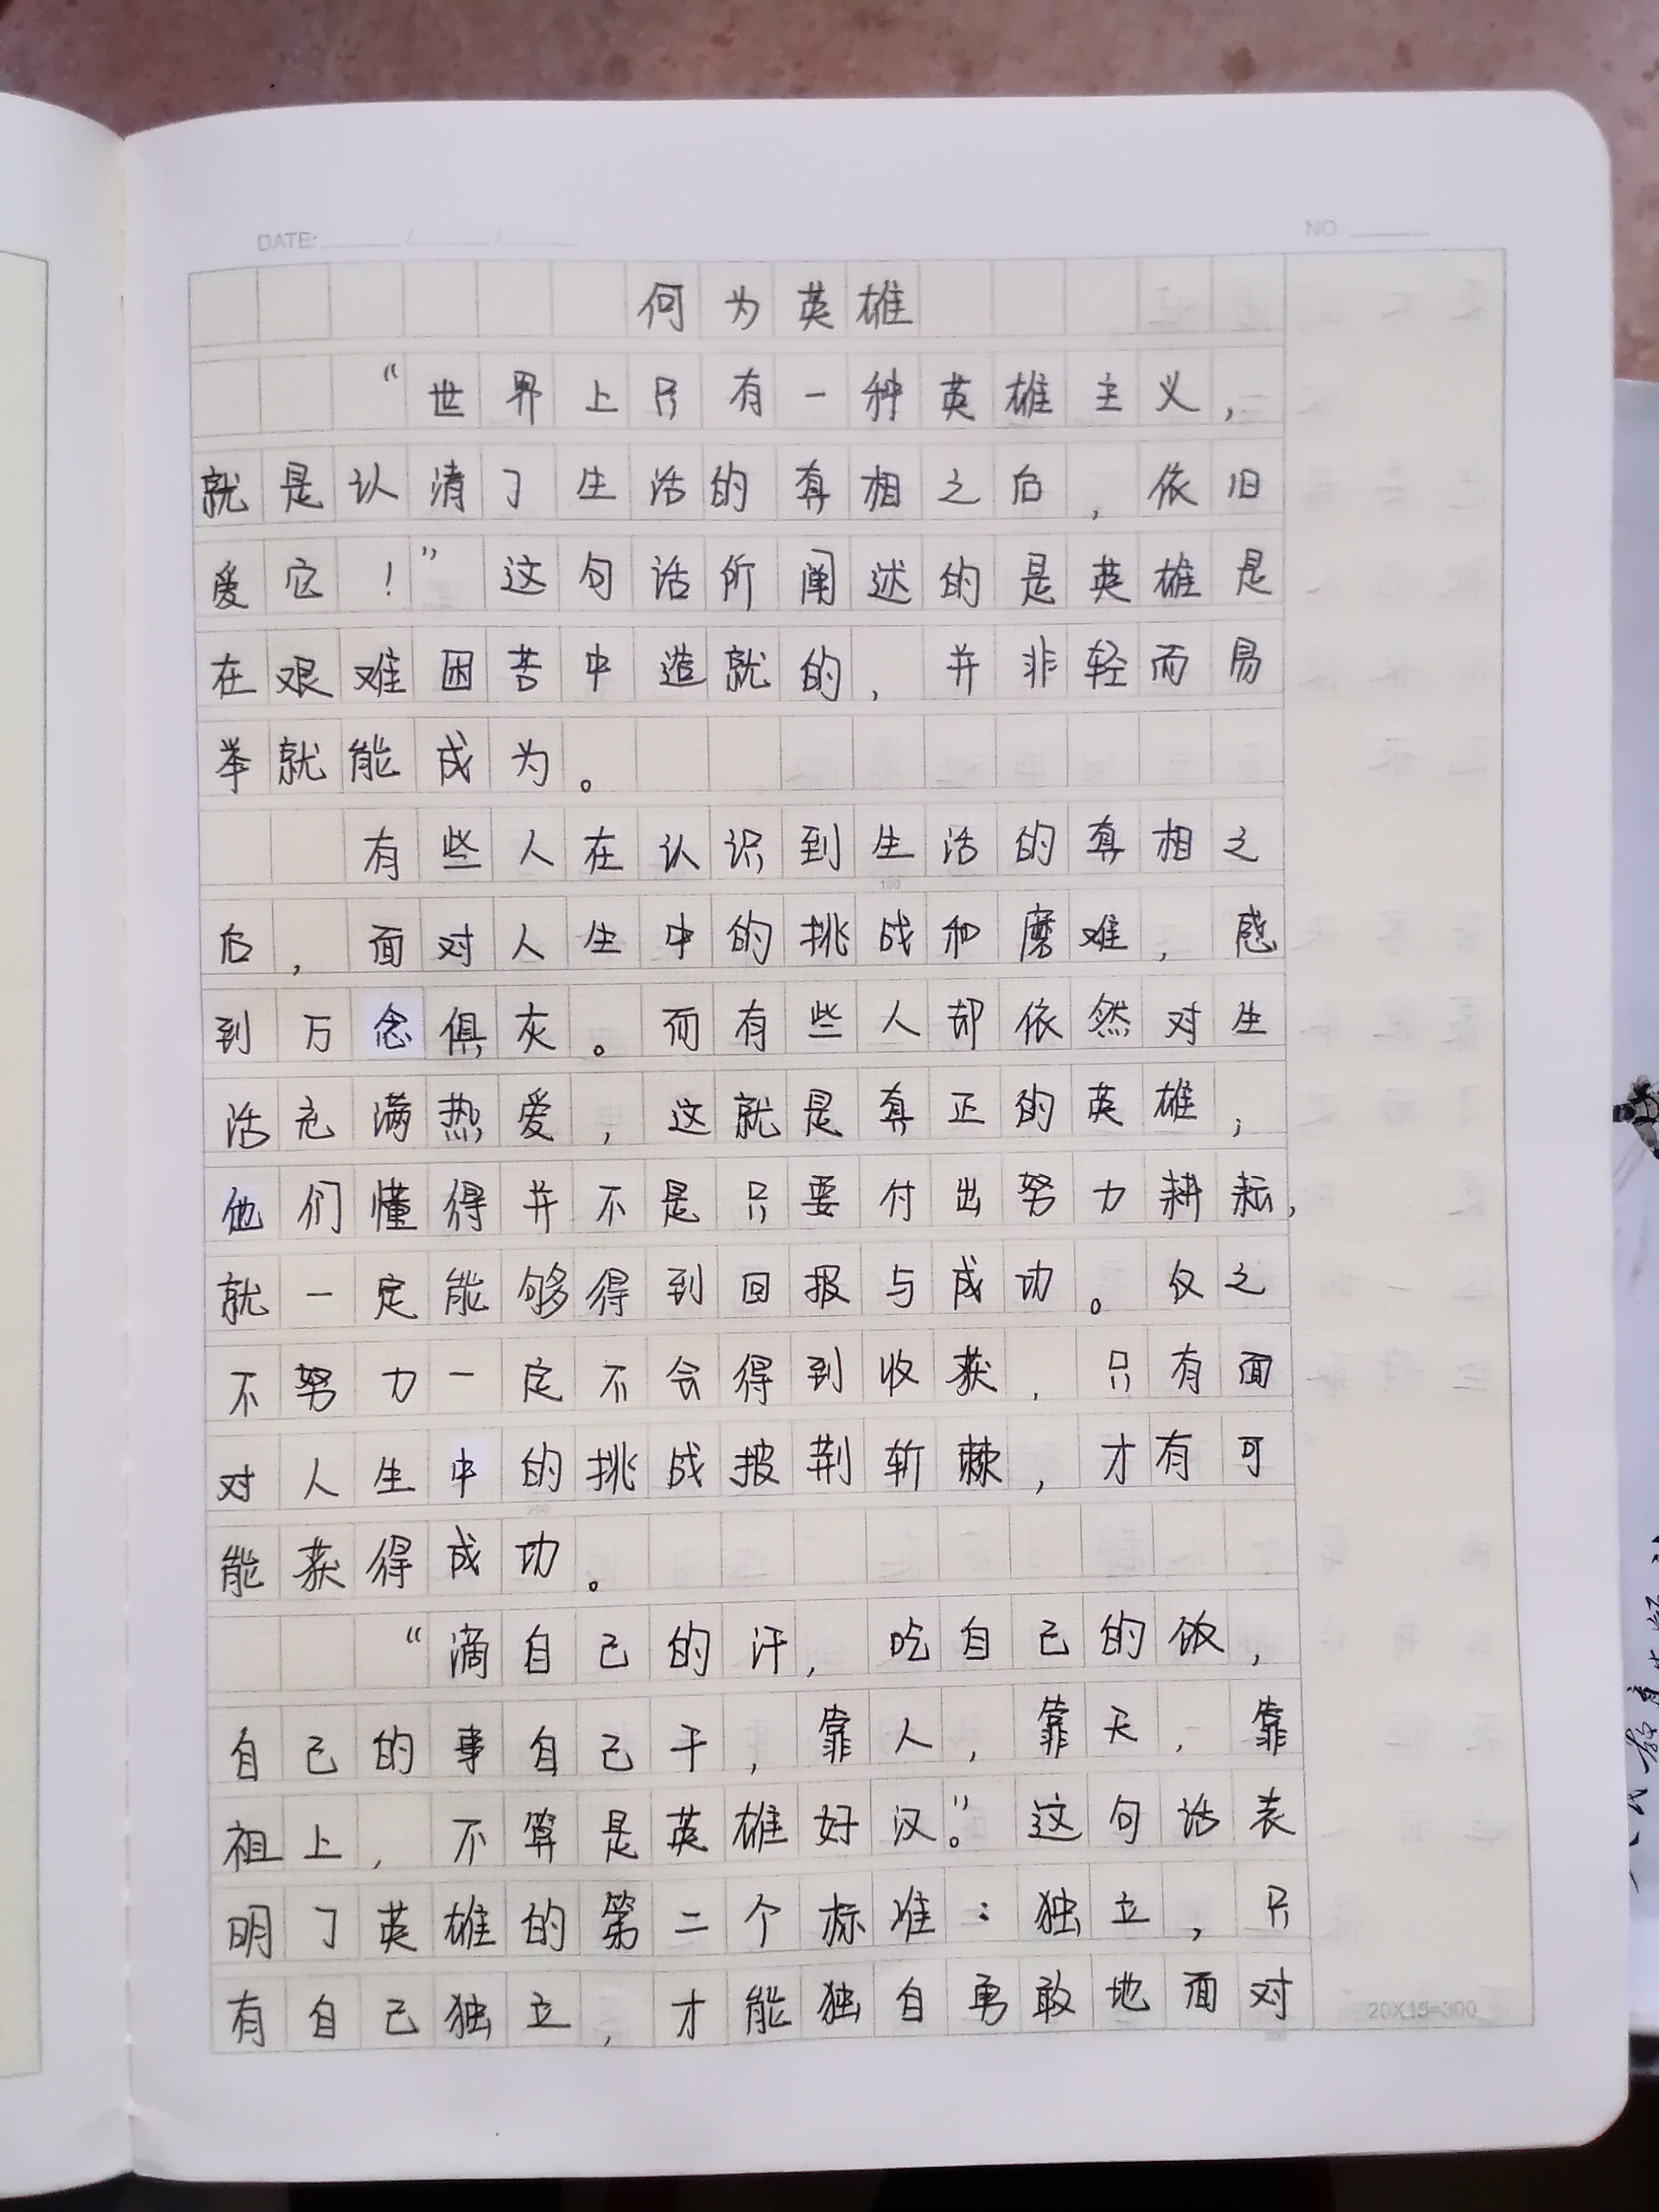 DATE: / / NO
何为英雄
“世界上只有一种英雄主义，
就是认清了生活的真相之后，依旧
爱它！”这句话所阐述的是英雄是
在艰难困苦中造就的，并非轻而易
举就能成为。
有些人在认识到生活的真相之
后，面对人生中的挑战和磨难，感
到万念俱灰。而有些人却依然对生
活充满热爱，这就是真正的英雄，
他们懂得并不是只要付出努力耕耘，
就一定能够得到回报与成功。仅之
不努力一定不会得到收获，只有面
对人生中的挑战披荆斩棘，才有可
能获得成功。
“滴自己的汗，吃自己的饭，
自己的事自己干，靠人，靠天，靠
祖上，不算是英雄好汉。”这句话表
明了英雄的第二个标准：独立，只
有自己独立，才能独自勇敢地面对
20X15=300